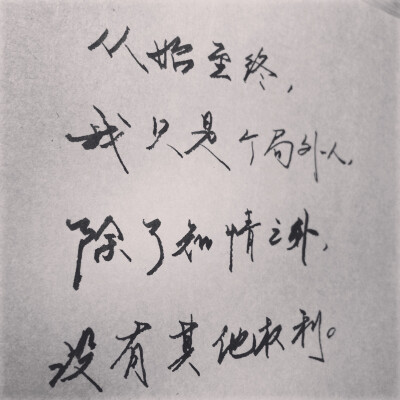 从始至终，
我只是个局外人，
除了知情之外，
没有其他权利。